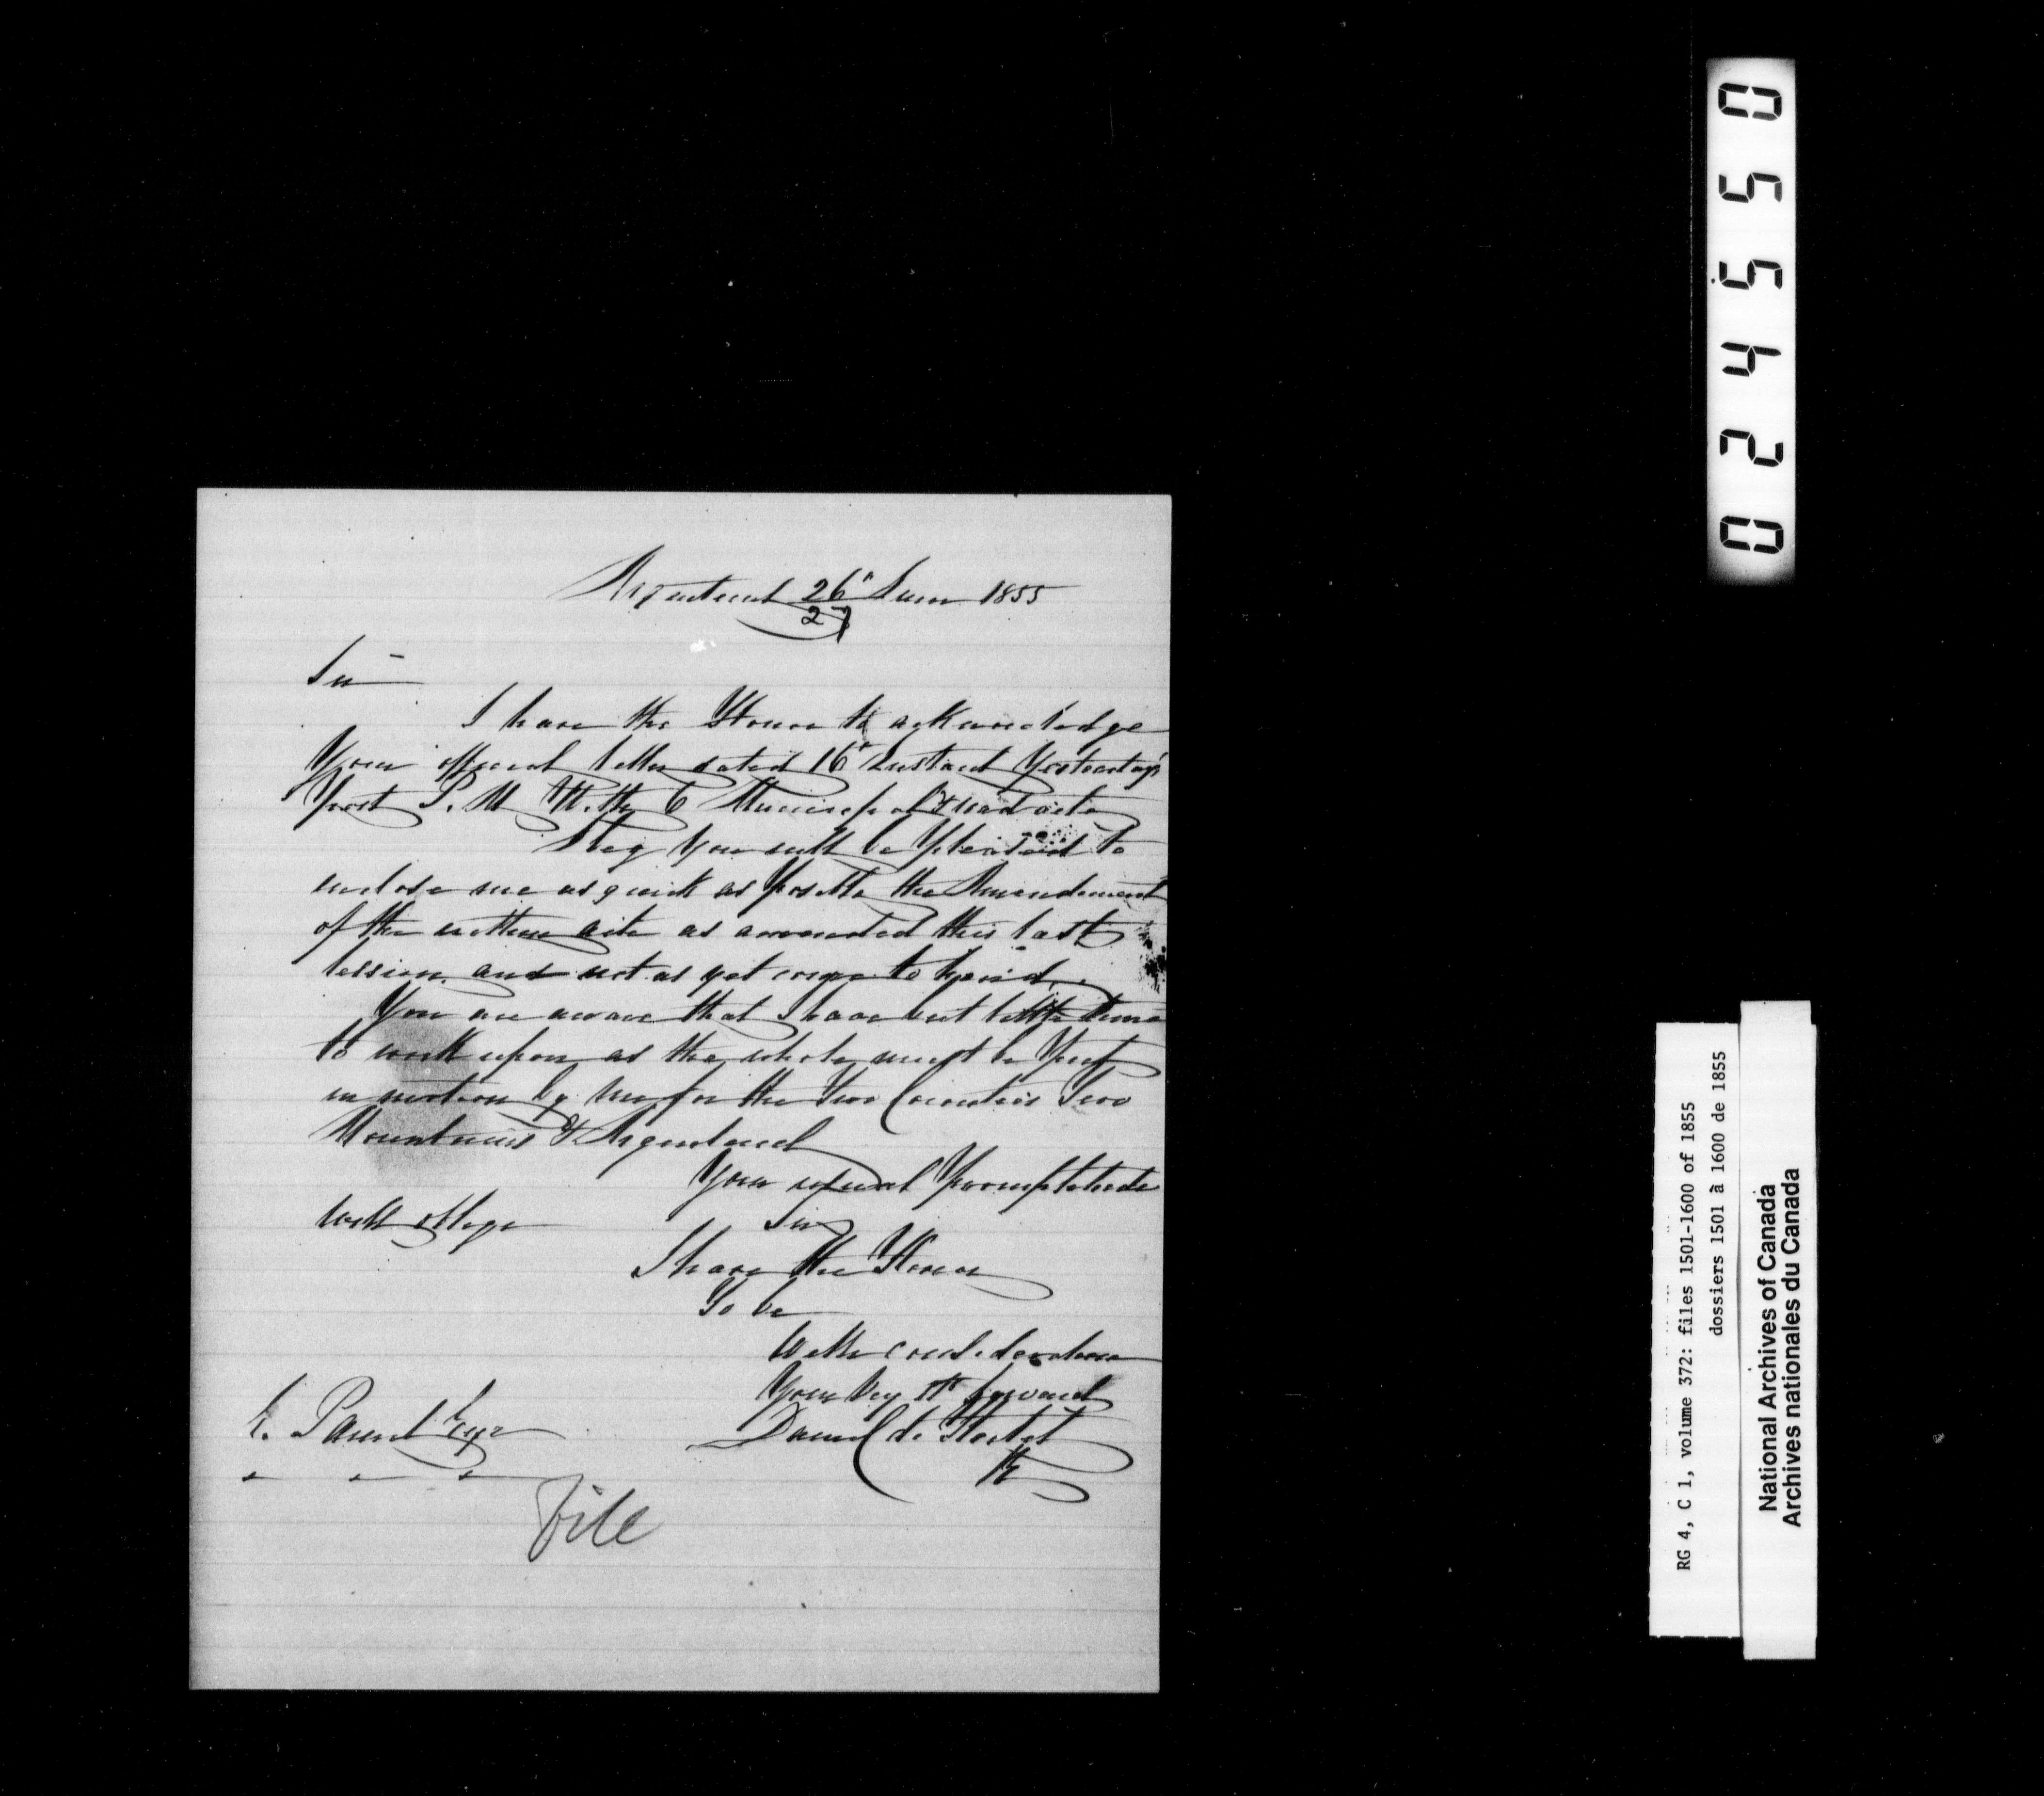 Argenteuil 26th June 1855
27
Sir
I have the Honor to acknowledge
Your official letter dated 16th Instant Yesterday's
Post P. M With 6 Municipal & road acts
I beg You will be Pleased to
enclose me as quick as Possible the Amendment
of the acts as amended this last
session and not as yet come to hand.
You are aware that I have but little time
to work upon as the whole must be Put
in motion by me for the Two Counties Two
Mountains & Argenteuil
Your usual Promptitude
will oblige Sir
I have the Honor
To be
With consideration
Your Obt Servant
E. Parent Esqr Daniel de Hertel
File
024550
RG 4, C 1, volume 372: files 1501-1600 of 1855
dossiers 1501 à 1600 de 1855
National Archives of Canada
Archives nationales du Canada